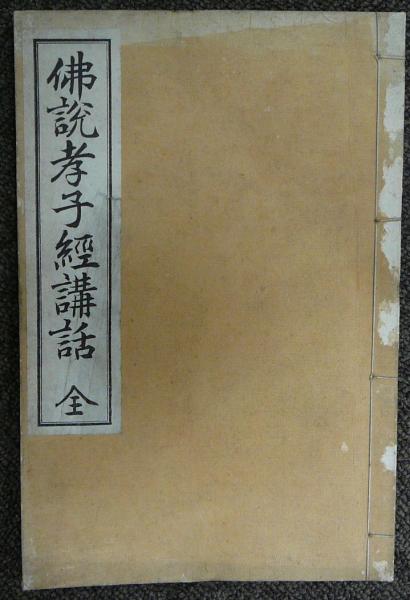 佛説孝子經講話 全